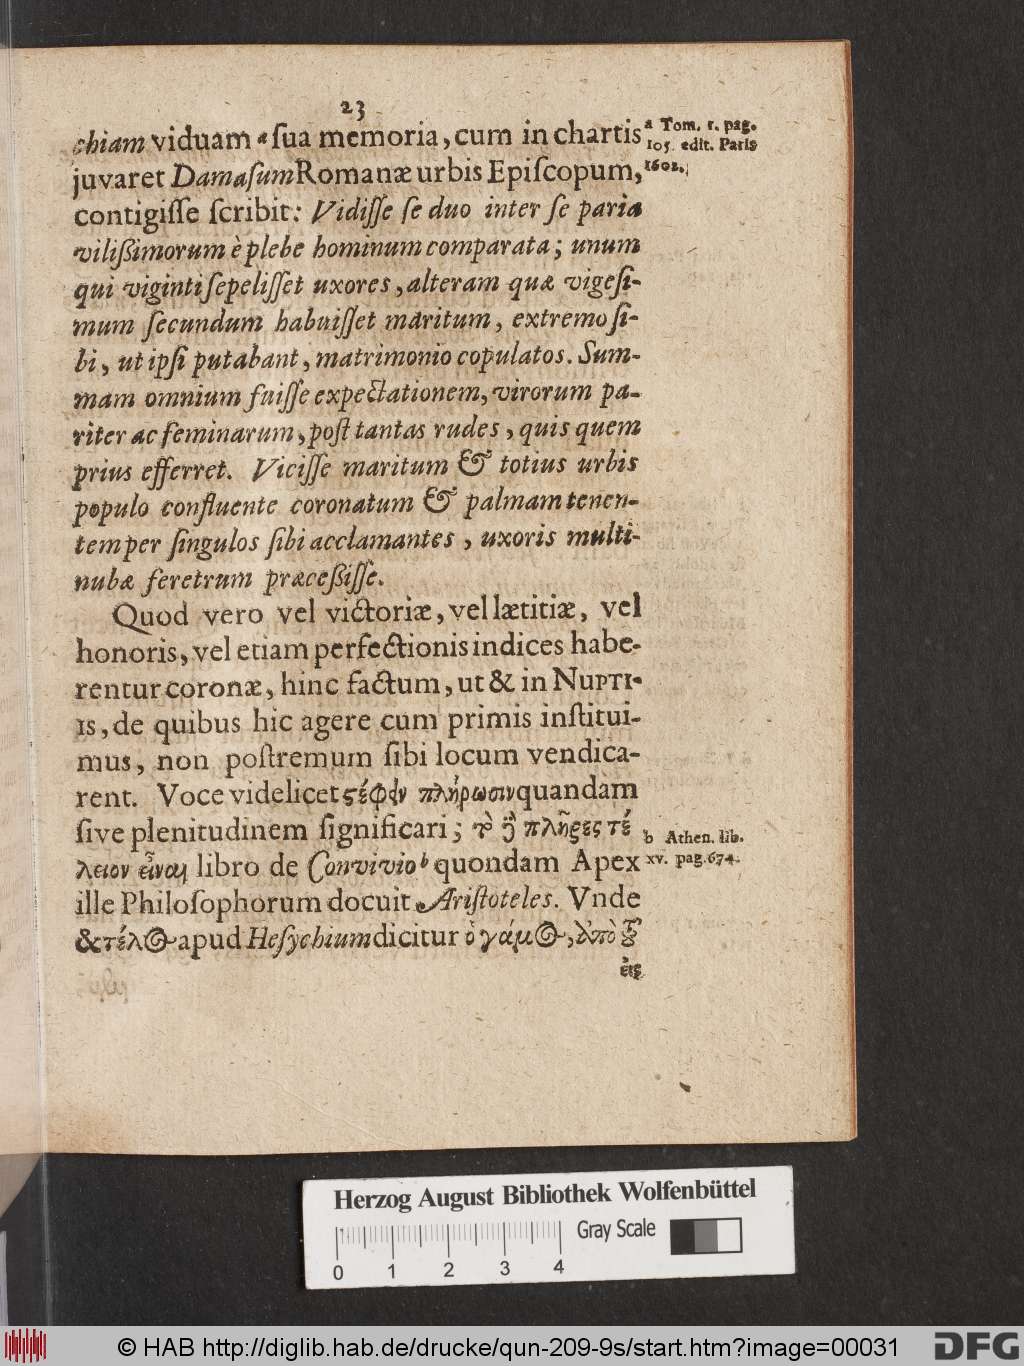 23
chiam viduam ᵃ ſua memoria, cum in chartis
juvaret Damaſum Romanæ urbis Epiſcopum,
contigiſſe ſcribit: Vidiſſe ſe duo inter ſe paria
vilißimorum è plebe hominum comparata; unum
qui viginti ſepeliſſet uxores, alteram quæ vigeſi-
mum ſecundum habuiſſet maritum, extremo ſi-
bi, ut ipſi putabant, matrimonio copulatos. Sum-
mam omnium fuiſſe expectationem, virorum pa-
riter ac feminarum, poſt tantas rudes, quis quem
prius efferret. Viciſſe maritum & totius urbis
populo confluente coronatum & palmam tenen-
tem per ſingulos ſibi acclamantes, uxoris multi-
nubæ feretrum præceßiſſe.
Quod vero vel victoriæ, vel lætitiæ, vel
honoris, vel etiam perfectionis indices habe-
rentur coronæ, hinc factum, ut & in NUPTI-
IS, de quibus hic agere cum primis inſtitui-
mus, non poſtremum ſibi locum vendica-
rent. Voce videlicet ϛέφειν πλήρωσιν quandam
ſive plenitudinem ſignificari; τὸ δὲ πλῆρες τέ
λειον εἶναι libro de Convivio ᵇ quondam Apex
ille Philoſophorum docuit Ariſtoteles. Vnde
& τέλος apud Heſychium dicitur ὁ γάμος, ἀπὸ τοῦ
εἰς
a Tom. 1. pag.
105. edit. Paris
1602.
b Athen. lib.
xv. pag. 674.
Herzog August Bibliothek Wolfenbüttel
Gray Scale
0 1 2 3 4
© HAB http://diglib.hab.de/drucke/qun-209-9s/start.htm?image=00031
DFG